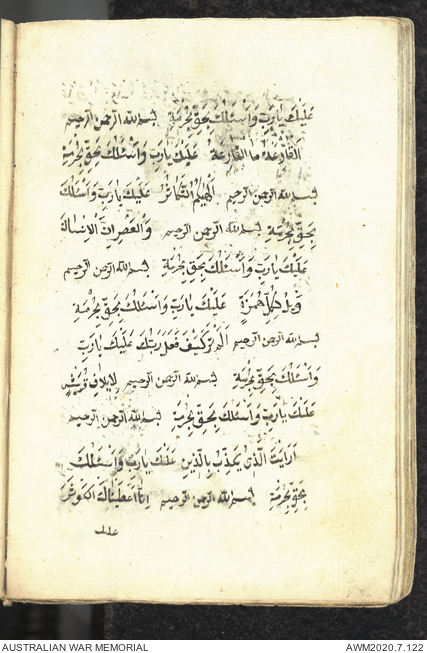 عَلَيْكَ يَارَبِّ وَاَسْئَلُكَ بِحَقِّ بِحُرْمَةِ بسم الله الرحمن الرحيم
اَلْقَارِعَةُ مَا الْقَارِعَةُ عَلَيْكَ يَارَبِّ وَاَسْئَلُكَ بِحَقِّ بِحُرْمَةِ
بسم الله الرحمن الرحيم اَلْهٰيكُمُ التَّكَاثُرُ عَلَيْكَ يَارَبِّ وَاَسْئَلُكَ
بِحَقِّ بِحُرْمَةِ بسم الله الرحمن الرحيم وَالْعَصْرِ اِنَّ الْاِنْسَانَ
عَلَيْكَ يَارَبِّ وَاَسْئَلُكَ بِحَقِّ بِحُرْمَةِ بسم الله الرحمن الرحيم
وَيْلٌ لِكُلِّ هُمَزَةٍ عَلَيْكَ يَارَبِّ وَاَسْئَلُكَ بِحَقِّ بِحُرْمَةِ
بسم الله الرحمن الرحيم اَلَمْ تَرَ كَيْفَ فَعَلَ رَبُّكَ عَلَيْكَ يَارَبِّ
وَاَسْئَلُكَ بِحَقِّ بِحُرْمَةِ بسم الله الرحمن الرحيم لِاِيلَافِ قُرَيْشٍ
عَلَيْكَ يَارَبِّ وَاَسْئَلُكَ بِحَقِّ بِحُرْمَةِ بسم الله الرحمن الرحيم
اَرَاَيْتَ الَّذِى يُكَذِّبُ بِالدِّينِ عَلَيْكَ يَارَبِّ وَاَسْئَلُكَ
بِحَقِّ بِحُرْمَةِ بسم الله الرحمن الرحيم اِنَّا اَعْطَيْنَاكَ الْكَوْثَرَ
عليك
AUSTRALIAN WAR MEMORIAL AWM2020.7.122